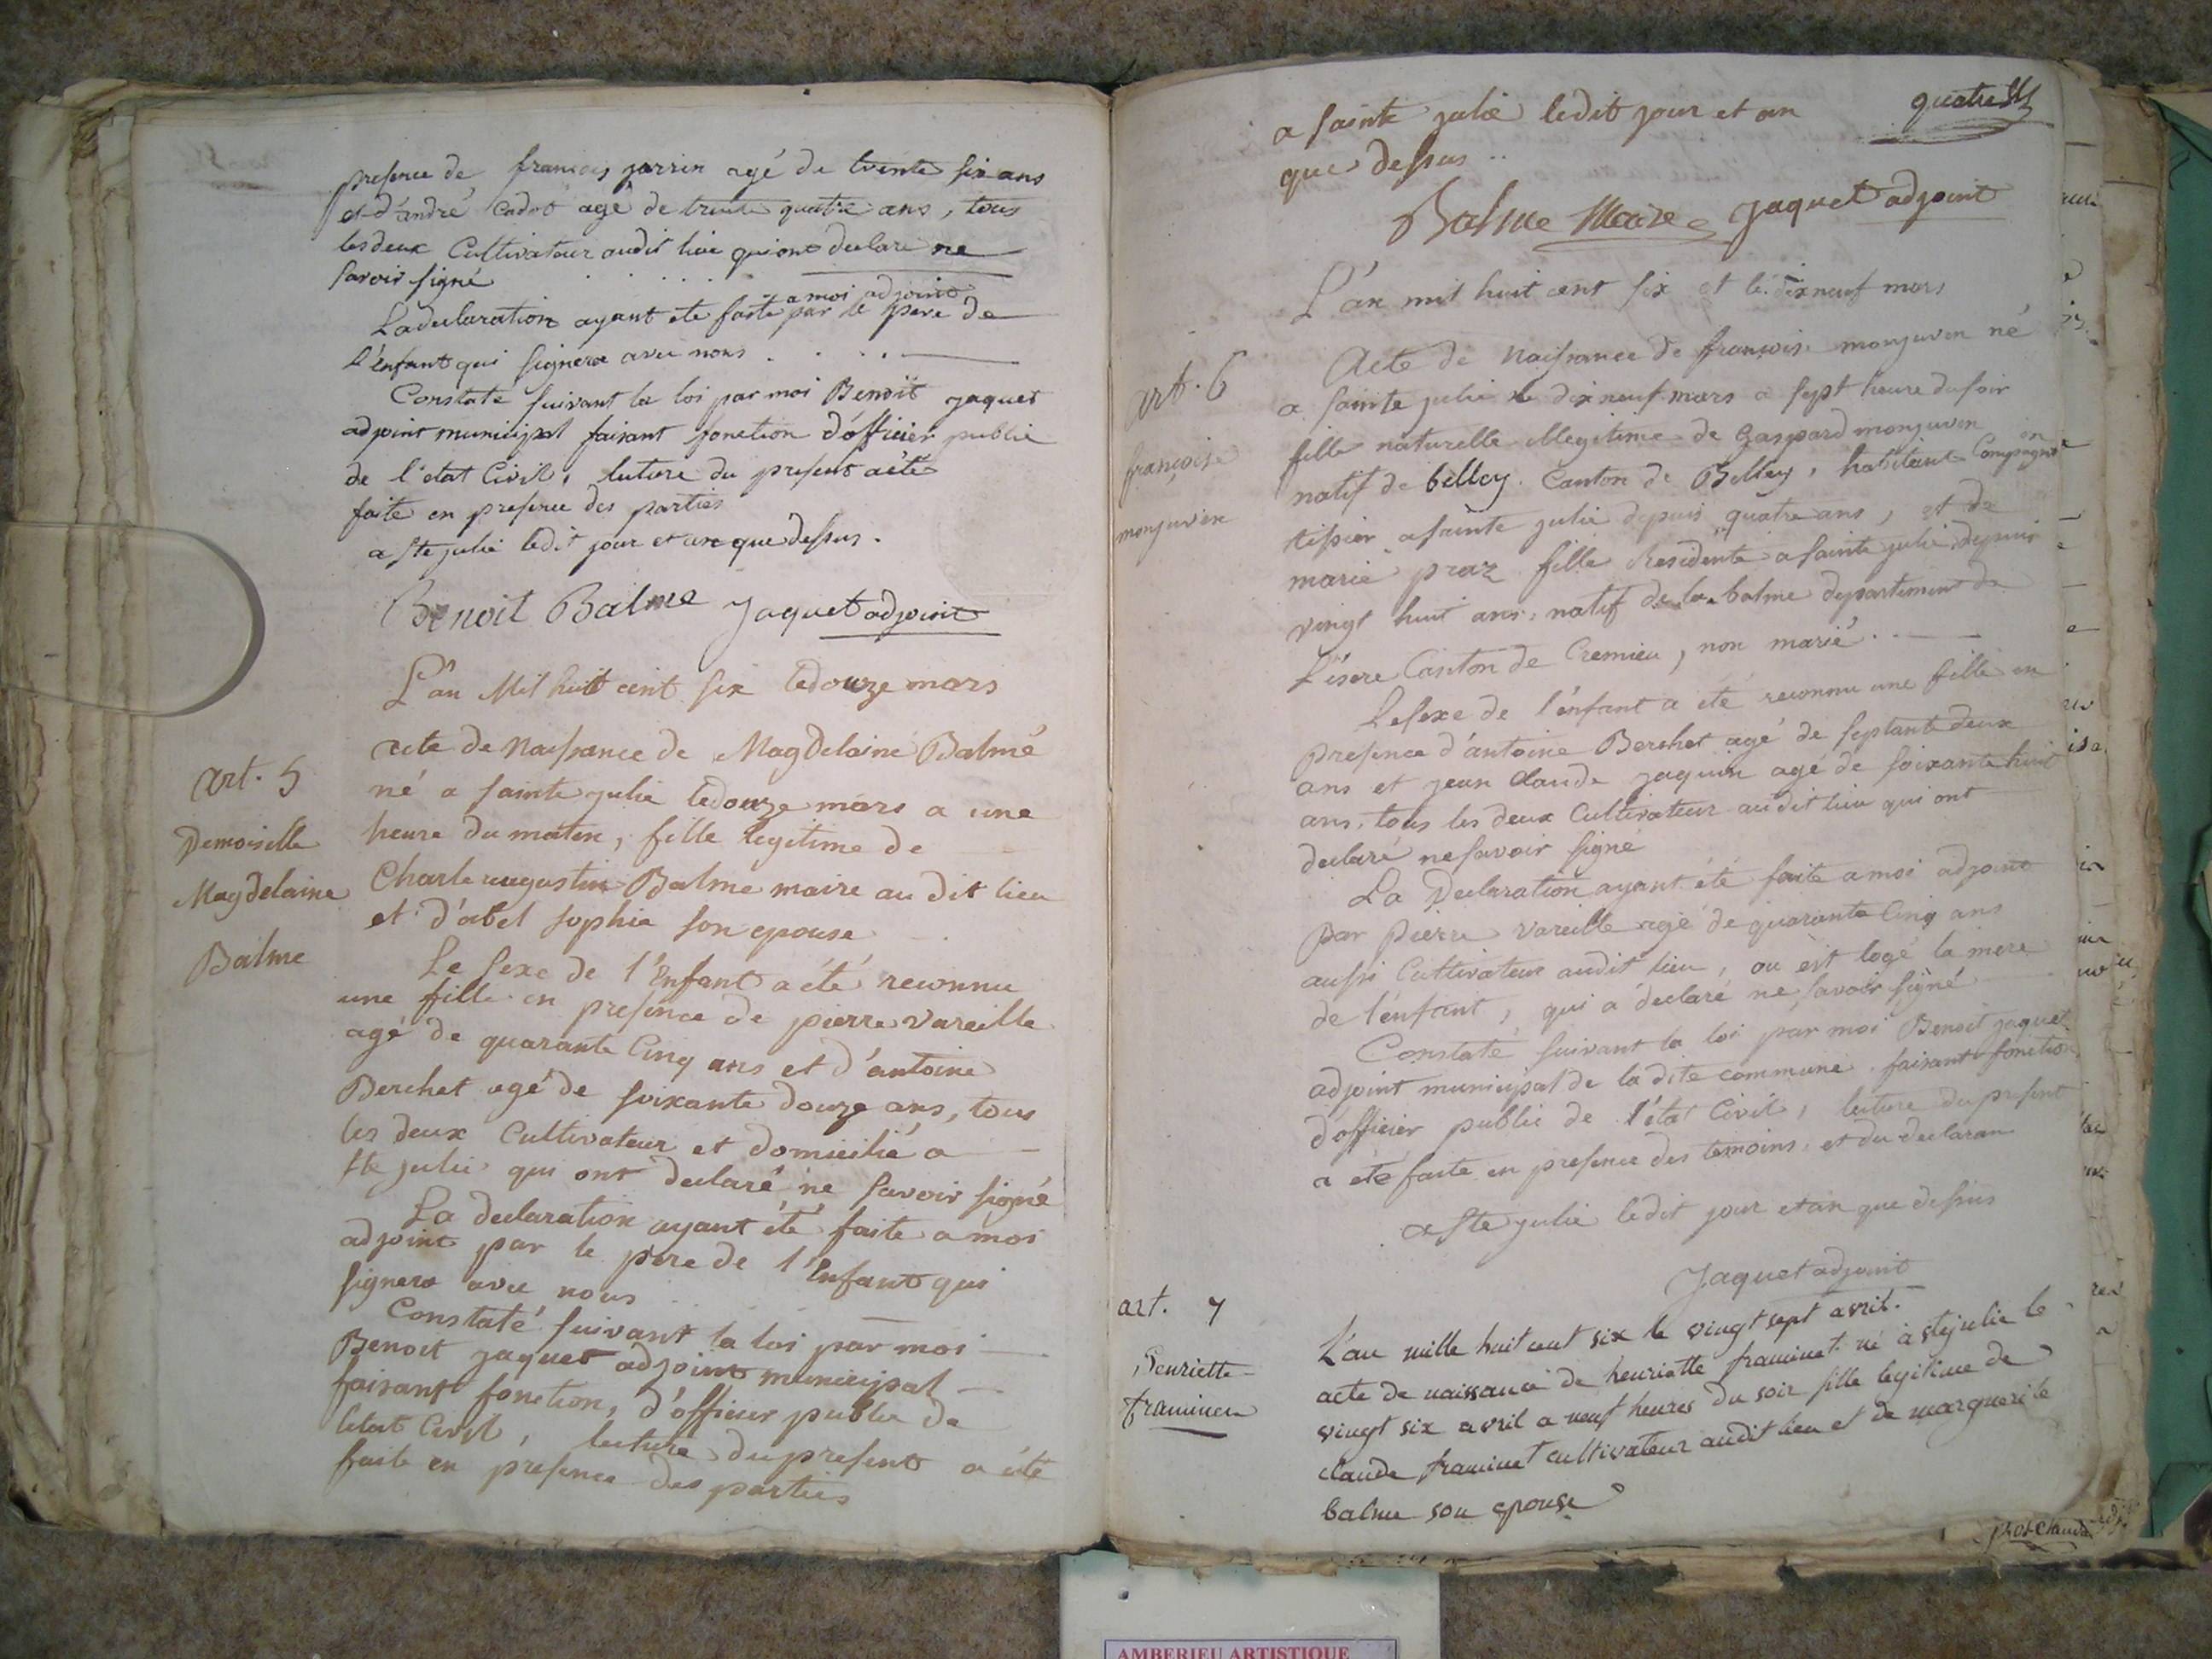 presence de françois jarrin agé de trente six ans
et d'andré Cadot agé de trente quatre ans, tous
les deux Cultivateur audit lieu qui ont declaré ne
savoir signé
La declaration ayant ete faite a moi adjoint par le pere de
l'enfant qui signera avec nous
Constaté suivant la loi par moi Benoit jaquet
adjoint municipal faisant fonction d'officier public
de l'etat Civil, lecture du present acte
faite en presence des parties
a Ste julie ledit jour et an que dessus.
Benoit Balme jaquet adjoint
L'an Mil huit cent six le douze mars
art. 5
Demoiselle
Magdelaine
Balme
acte de Naissance de Magdelaine Balme
né a sainte julie le douze mars a une
heure du maten, fille legitime de
Charle augustin Balme maire au dit lieu
et d'abel sophie son epouse
Le sexe de l'Enfant a été reconnu
une fille en presence de pierre vareille
agé de quarante Cinq ans et d'antoine
Berchet agé de soixante douze ans, tous
les deux Cultivateur et domicilié a
Ste julie qui ont declaré ne savoir signé
La declaration ayant été faite a moi
adjoint par le pere de l'Enfant qui
signera avec nous
Constaté suivant la loi par moi
Benoit jaquet adjoint municipal
faisant fonction, d'officier public de
letat Civil, lecture du present a été
faite en presence des parties
quatre
a sainte julie ledit jour et an
que dessus
Balme Maire jaquet adjoint
L'an mil huit cent six et le dix neuf mars
art. 6
françoise
monjuven
Acte de Naissance de françoise monjuven né
a sainte julie le dix neuf mars a sept heure du soir
fille naturelle illegitime de Gaspard monjuven
natif de belley. Canton de Belley, habitant en Compagnie
tissier a sainte julie depuis quatre ans, et de
marie praz fille residente a sainte julie depuis
vingt huit ans, natif de la balme departement de
L'isere Canton de Cremieu, non marié.
Le sexe de l'enfant a été reconnu une fille en
presence d'antoine Berchet agé de septante deux
ans et jean Claude jaquin agé de soixante huit
ans, tous les deux Cultivateur audit lieu qui ont
declaré ne savoir signé
La Declaration ayant été faite a moi adjoint
par pierre vareille agé de quarante Cinq ans
aussi Cultivateur audit lieu, ou est logé la mere
de l'enfant, qui a declaré ne savoir signé
Constaté suivant la loi par moi Benoit jaquet
adjoint municipal de la dite commune faisant fonction
d'officier public de l'état Civil, lecture du present
a été faite en presence des temoins, et du declaran
a Ste julie ledit jour et an que dessus
Jaquet adjoint
art. 7
henriette
framinet
L'an mille huit cent six le vingt sept avril.
acte de naissance de henriette framinet né à ste julie le
vingt six avril a neuf heures du soir fille legitime de
claude framinet cultivateur audit lieu et de marguerite
balme son epouse
AMBERIEU ARTISTIQUE